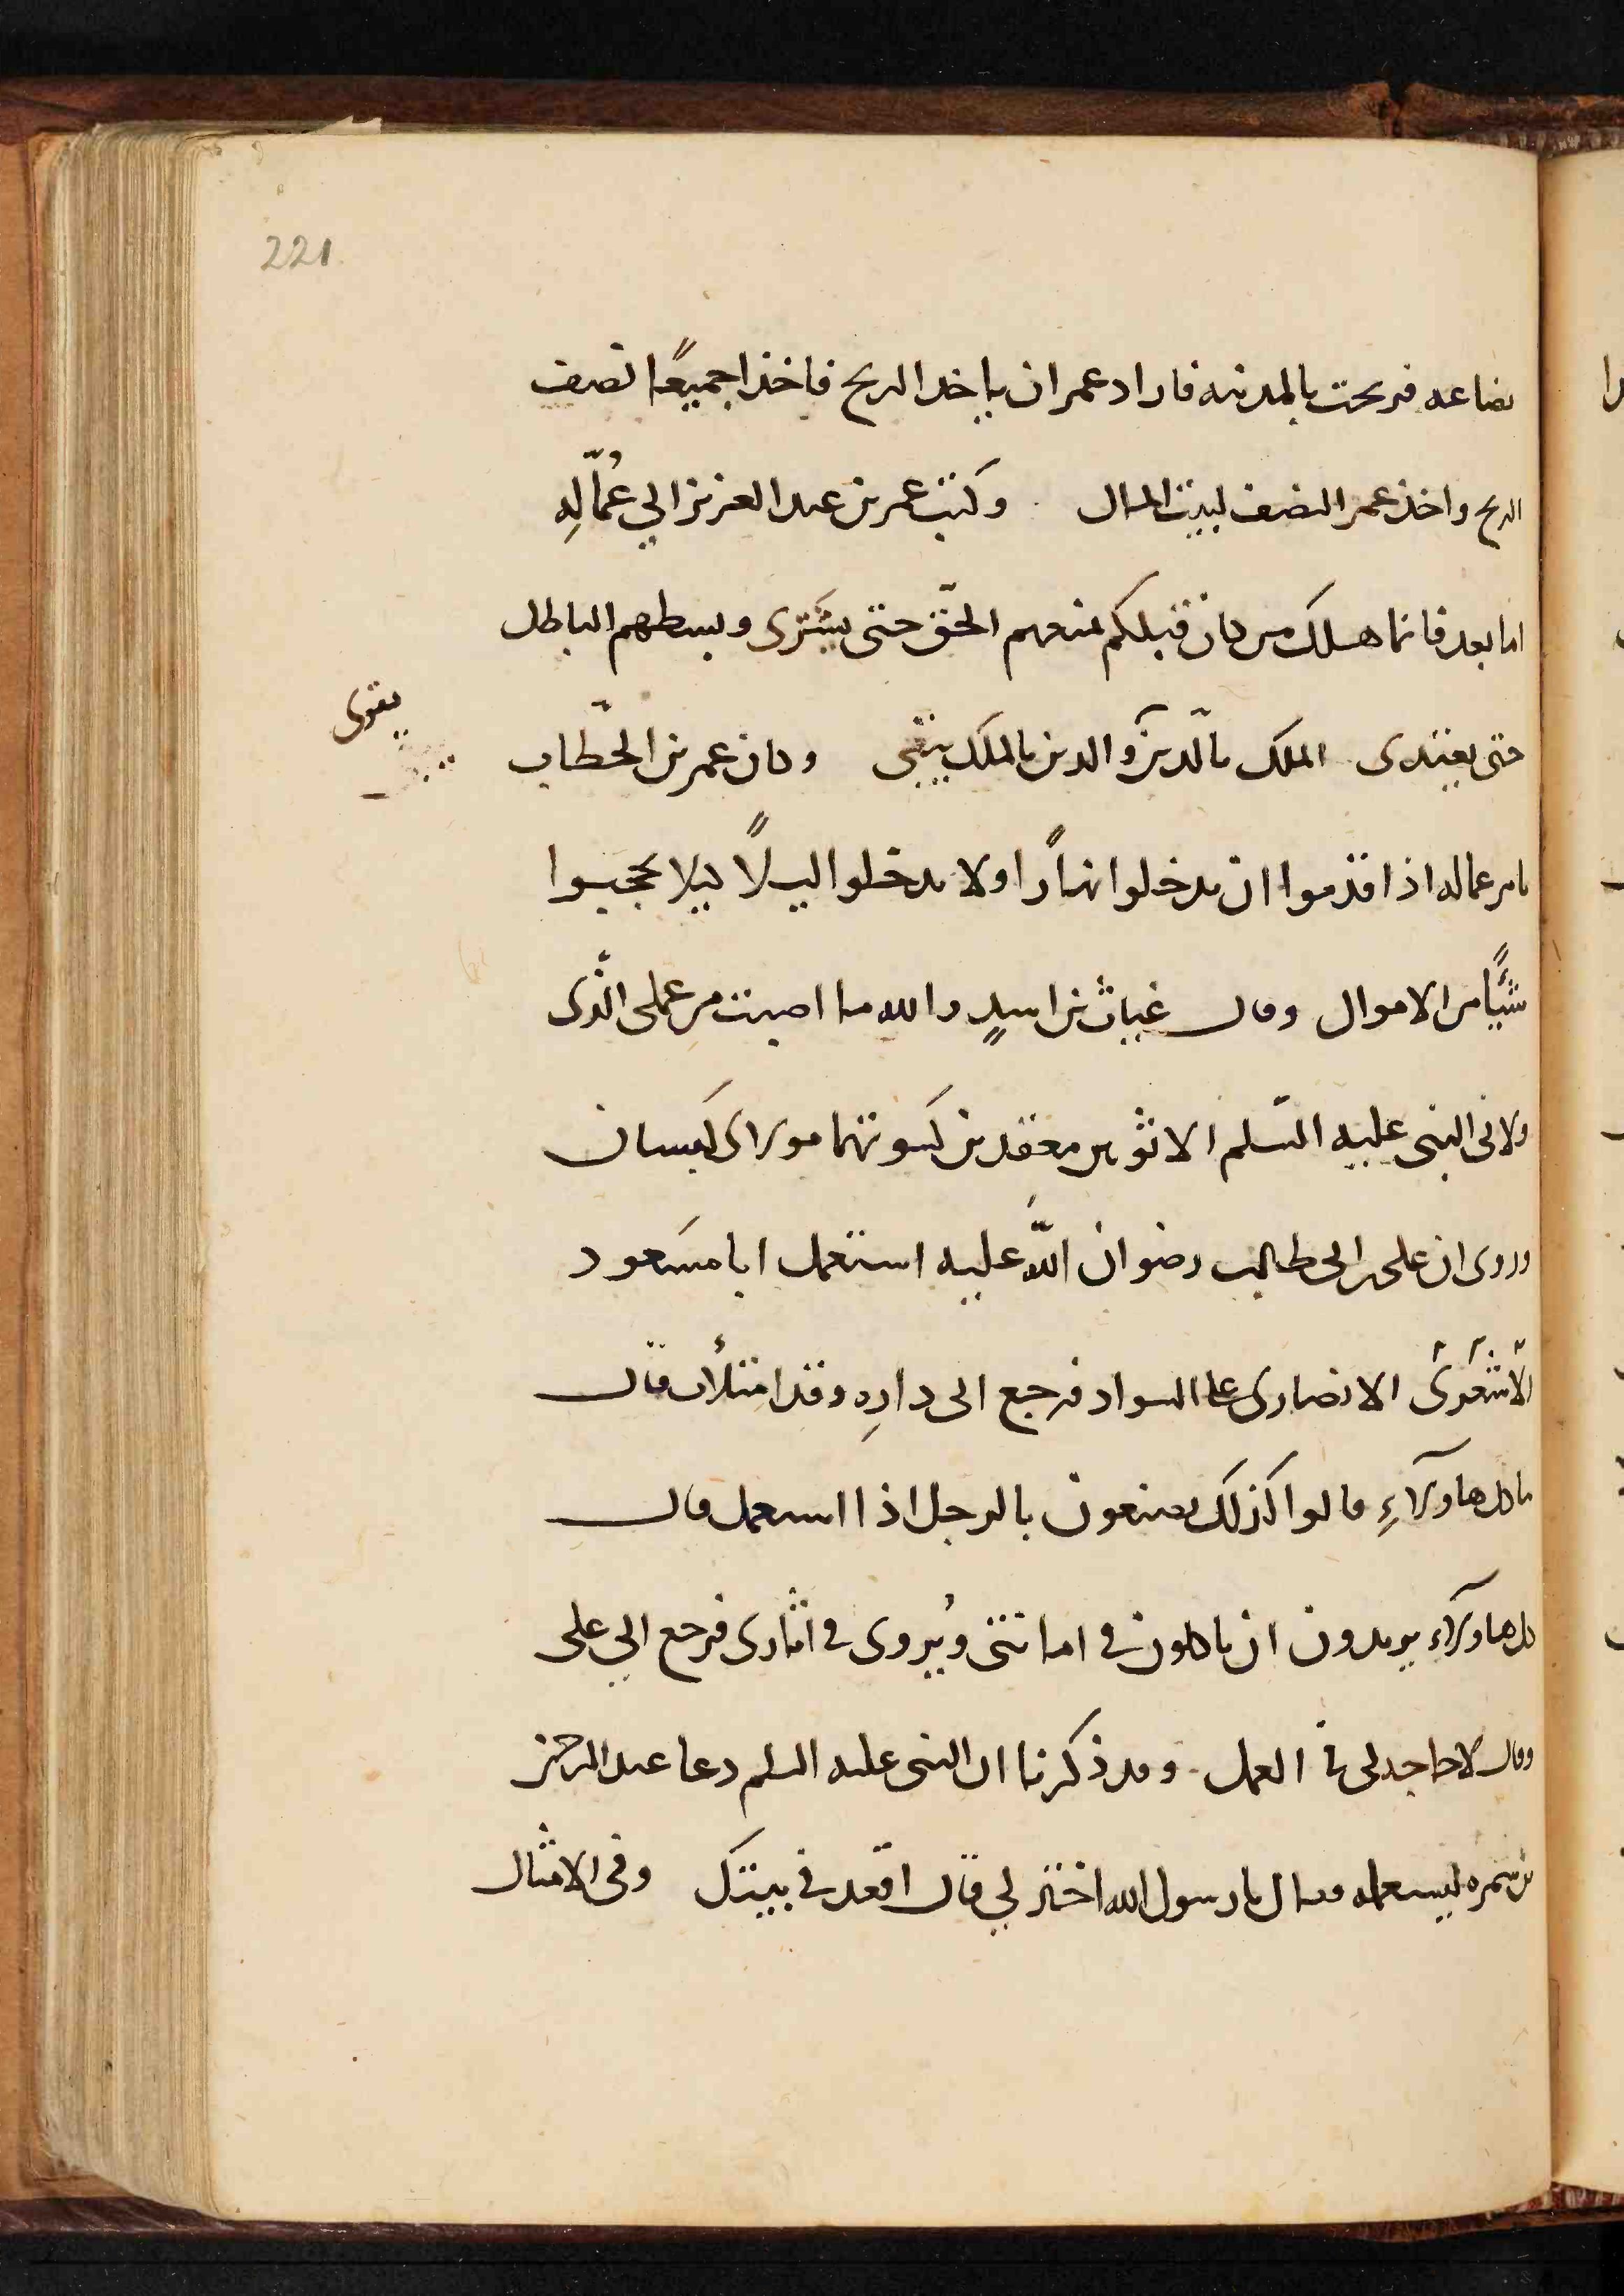 221
بضاعه فربحت بالمدينه فاراد عمر ان ياخد الربح فاخذا جميعًا نصف
الربح واخذ عمر النصف لبيت المال وكتب عمر بن عبد العزيز الي عُمّالِهِ
اما بعد فانما هلك من كان قبلكم لمنعهم الحقّ حتى يشترى وبسطهم الباطل
حتى يفتدى الملك بالدّين والدين بالملك يبقى وكان عمر بن الخطّاب
يقوى
يامر عماله اذا قدموا ان يدخلوا نهارًا ولا يدخلوا ليلًا ليلا يحجبوا
شيًّا من الاموال وقال غياث بن اسيدٍ والله ما اصبت من عملى الّذى
ولانى النبى عليه السّلم الا ثوبين معقدين كسوتهما مولاى كيسان
وروى ان على بن ابى طالب رضوان اللّه عليه استعمل ابا مسَعود
الاشعَرىَ الانصارى على السواد فرجع الى دارِه وقد امتلأت قال
ما كل هاولآءِ قالوا كذلك يصنعون بالرجل اذا استعمل قال
كل هاولآء يريدون ان ياكلون في امانتى ويُروى في اثارى فرجع الي على
وقال لا حاجه لى في العمل وقد ذكرنا ان النبى عليه السلم دعا عبد الرحمن
بن سَمره ليستعمله فقال يا رسول الله اختر لي قال اقعد في بيتك وفى الامثال